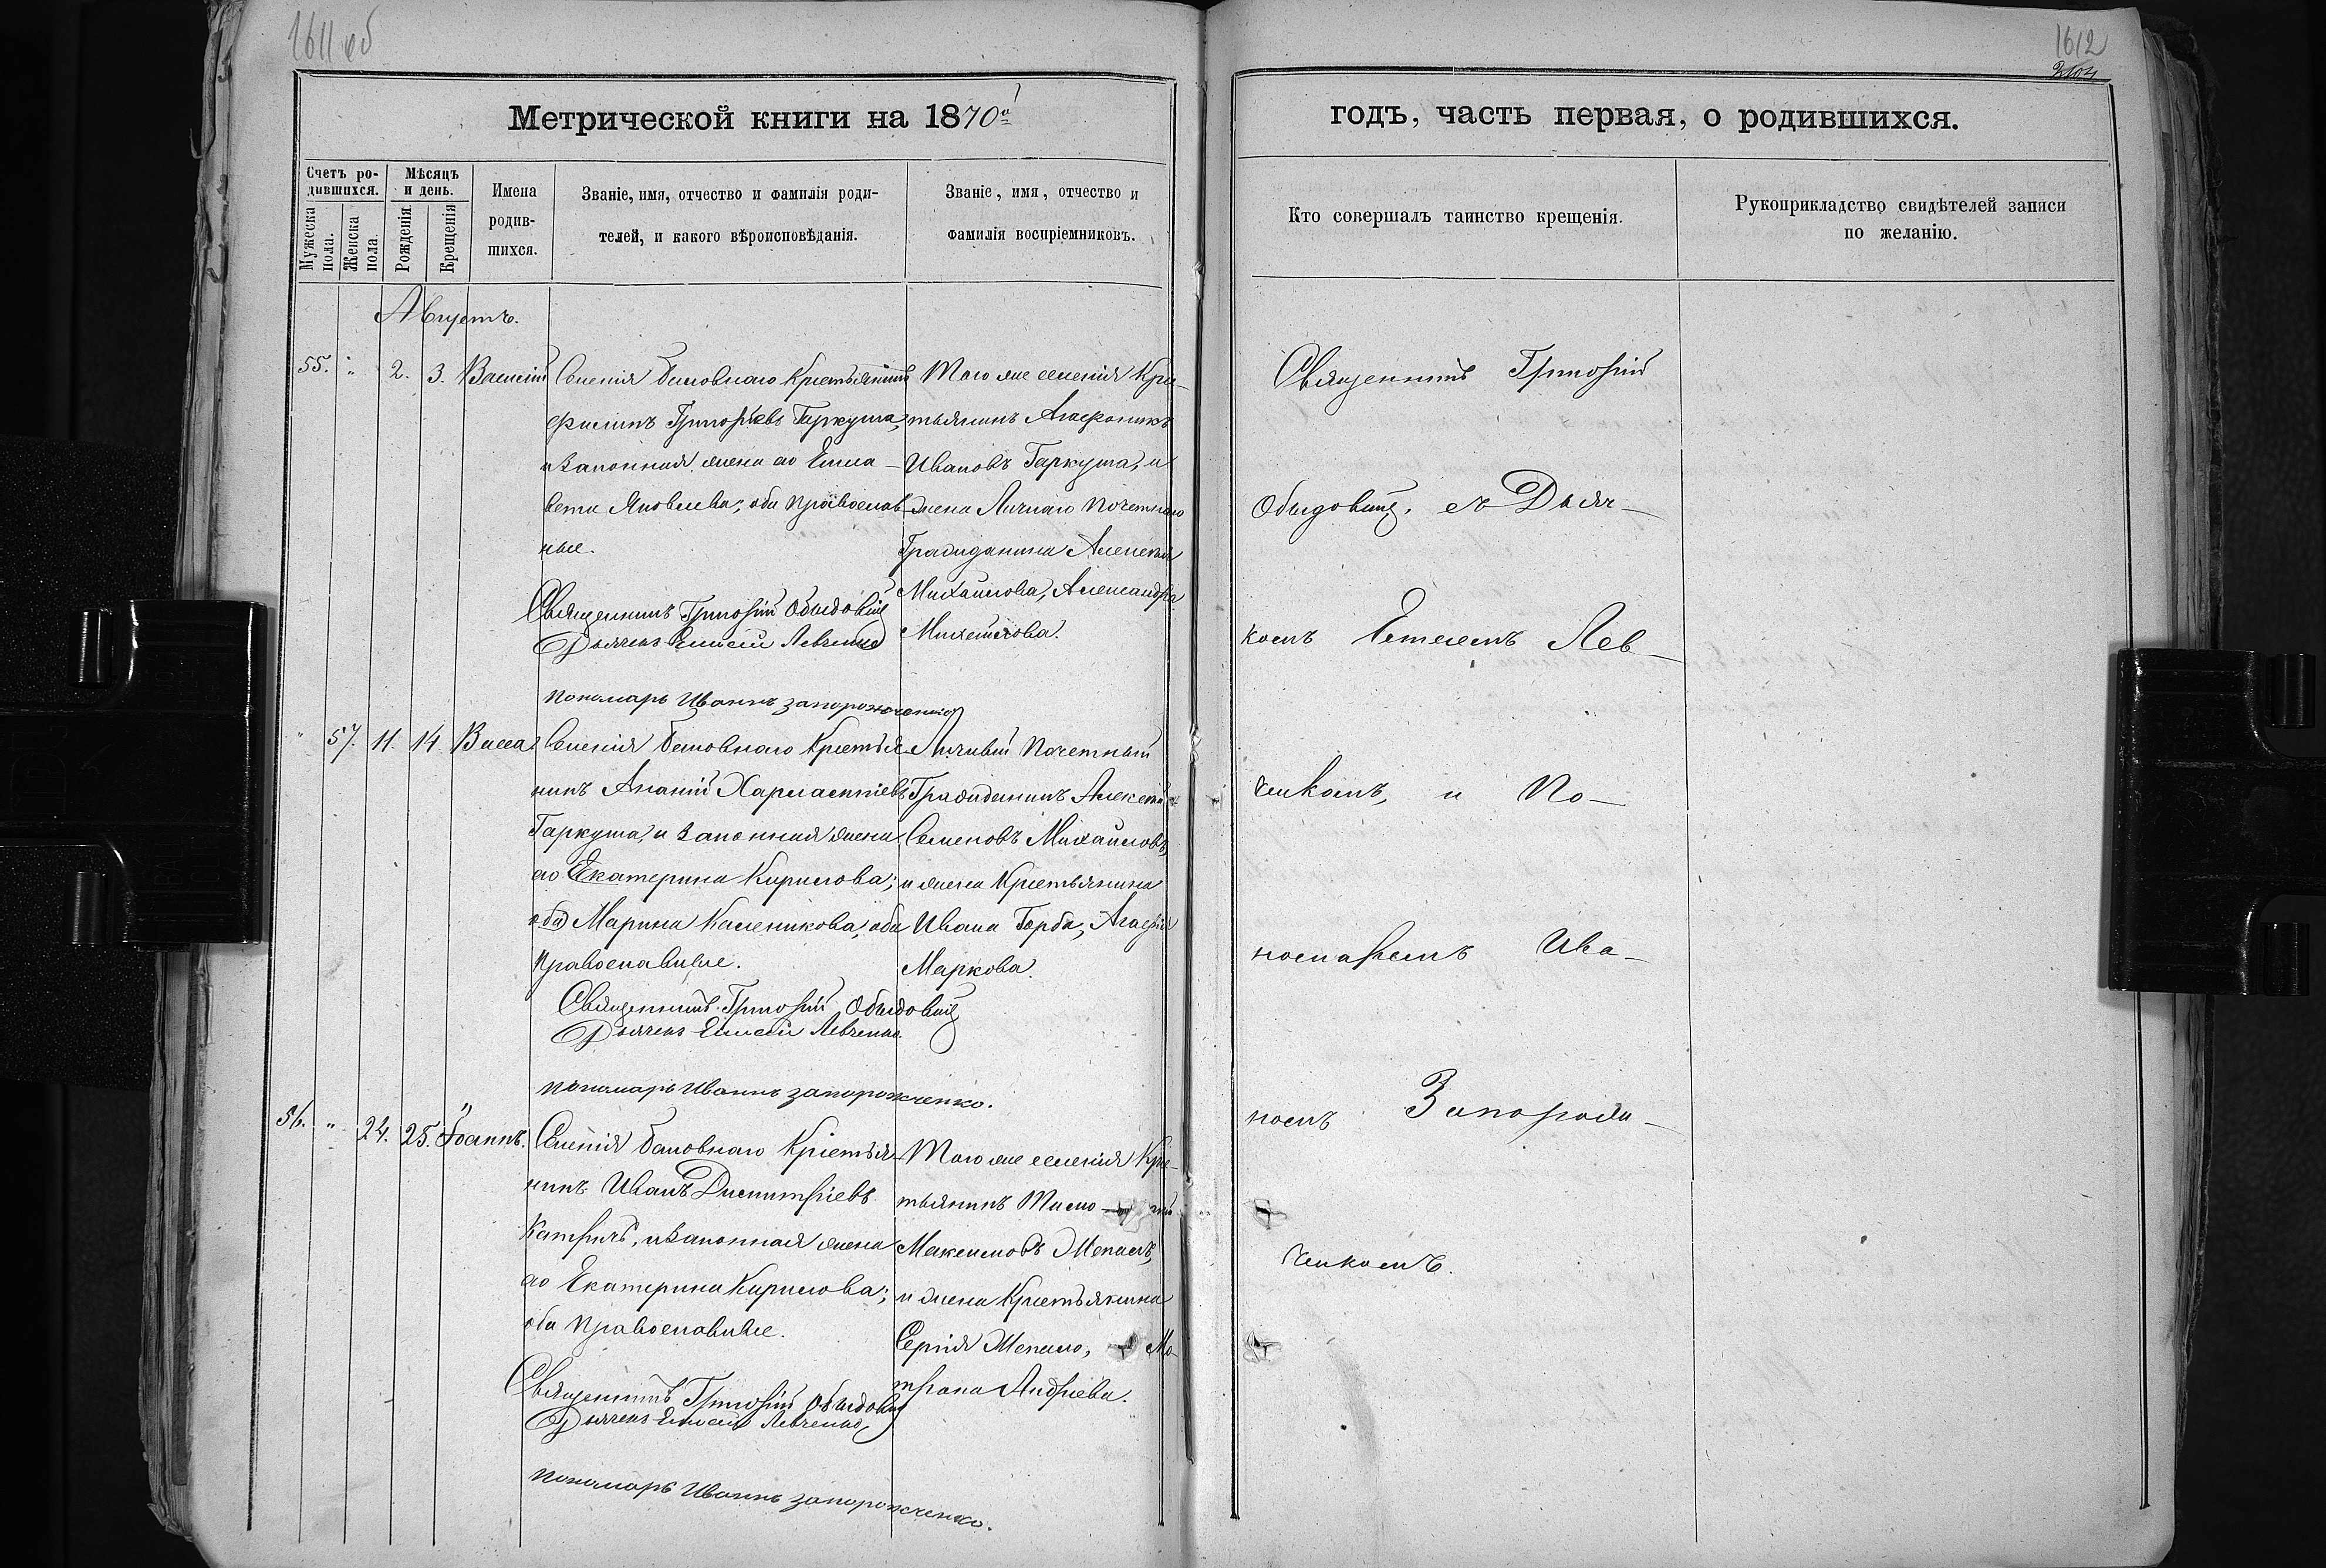 1611 об
1612
Метрической книги на 1870й
годъ, часть первая, о родившихся.
Счетъ родившихся.
Мужеска пола.
Женска пола.
Мѣсяцъ и день.
Рожденія.
Крещенія
Имена родившихся.
Званіе, имя, отчество и фамилія роди-
телей, и какого вѣроисповѣданія.
Званіе, имя, отчество и
фамилія воспріемниковъ.
Кто совершалъ таинство крещенія.
Рукоприкладство свидѣтелей записи
по желанію.
Августъ.
55. " 2. 3. Василій
Селенія Крестьянинъ
Григорьевъ Гаркуша,
и законная жена его Елиса-
вета Яковлева; оба православ-
ные.
Священникъ Григорій Обыдовщ
Дьячекъ Елисей Левченко
Пономарь Иваннъ Запорожченко
Того же селенія Кре-
стьянинъ Агафоникъ
Ивановъ Гаркуша, и
жена Личнаго Почетнаго
Гражданина Алексѣя
Михайлова, Александра
Михайлова.
" 57. 11. 14. Васса
Селенія Крестья-
нинъ Ананій Харлампіевъ
Гаркуша, и законная жена
его Екатерина Кирилова;
Марина Каленикова, оба
Православные.
Священникъ Григорій Обыдовщ
Дьячекъ Елисей Левченко.
Пономарь Иваннъ Запорожченко.
Личный Почетный
Гражданинъ Алексѣй
Семеновъ Михайловъ,
и жена Крестьянина
Ивана Горба, Агафія
Маркова.
56. " 24. 25. Іоаннъ.
Селенія Крестья-
нинъ Иванъ Димитріевъ
Катричъ, и законная жена
его Екатерина Кирилова;
оба Православные.
Священникъ Григорій Обыдовщ
Дьячекъ Елисей Левченко,
Пономарь Иваннъ Запорожченко.
Того же селенія Кре-
стьянинъ
Максимовъ
и жена Крестьянина
Сергія Мо-
трона Андріева.
Священникъ Григорій
Обыдовщ. съ Дьяч-
комъ Лев-
ченкомъ, и По-
номаремъ Ива-
номъ Запорож-
ченкомъ.